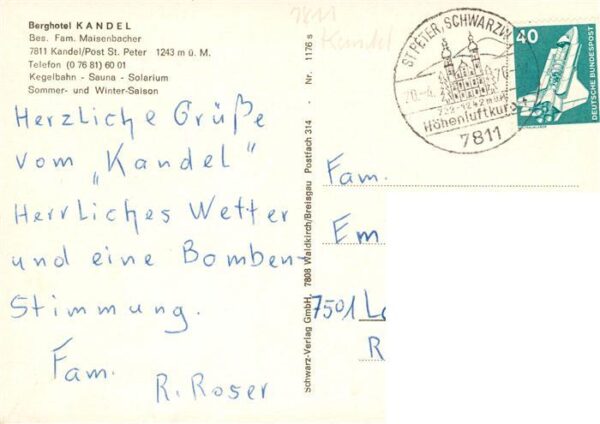 Berghotel KANDEL
Bes. Fam. Maisenbacher
7811 Kandel/Post St. Peter 1243 m ü. M.
Telefon (0 76 81) 60 01
Kegelbahn - Sauna - Solarium
Sommer- und Winter-Saison
Herzliche Grüße
vom „Kandel"
Herrliches Wetter
und eine Bomben-
Stimmung.
Fam.
R. Roser
Schwarz-Verlag GmbH, 7808 Waldkirch/Breisgau Postfach 314 · Nr. 1176 s
7811
Kandel
ST. PETER, SCHWARZW
Höhenluftkuro
7811
40
DEUTSCHE BUNDESPOST
Fam.
Em
7501
R